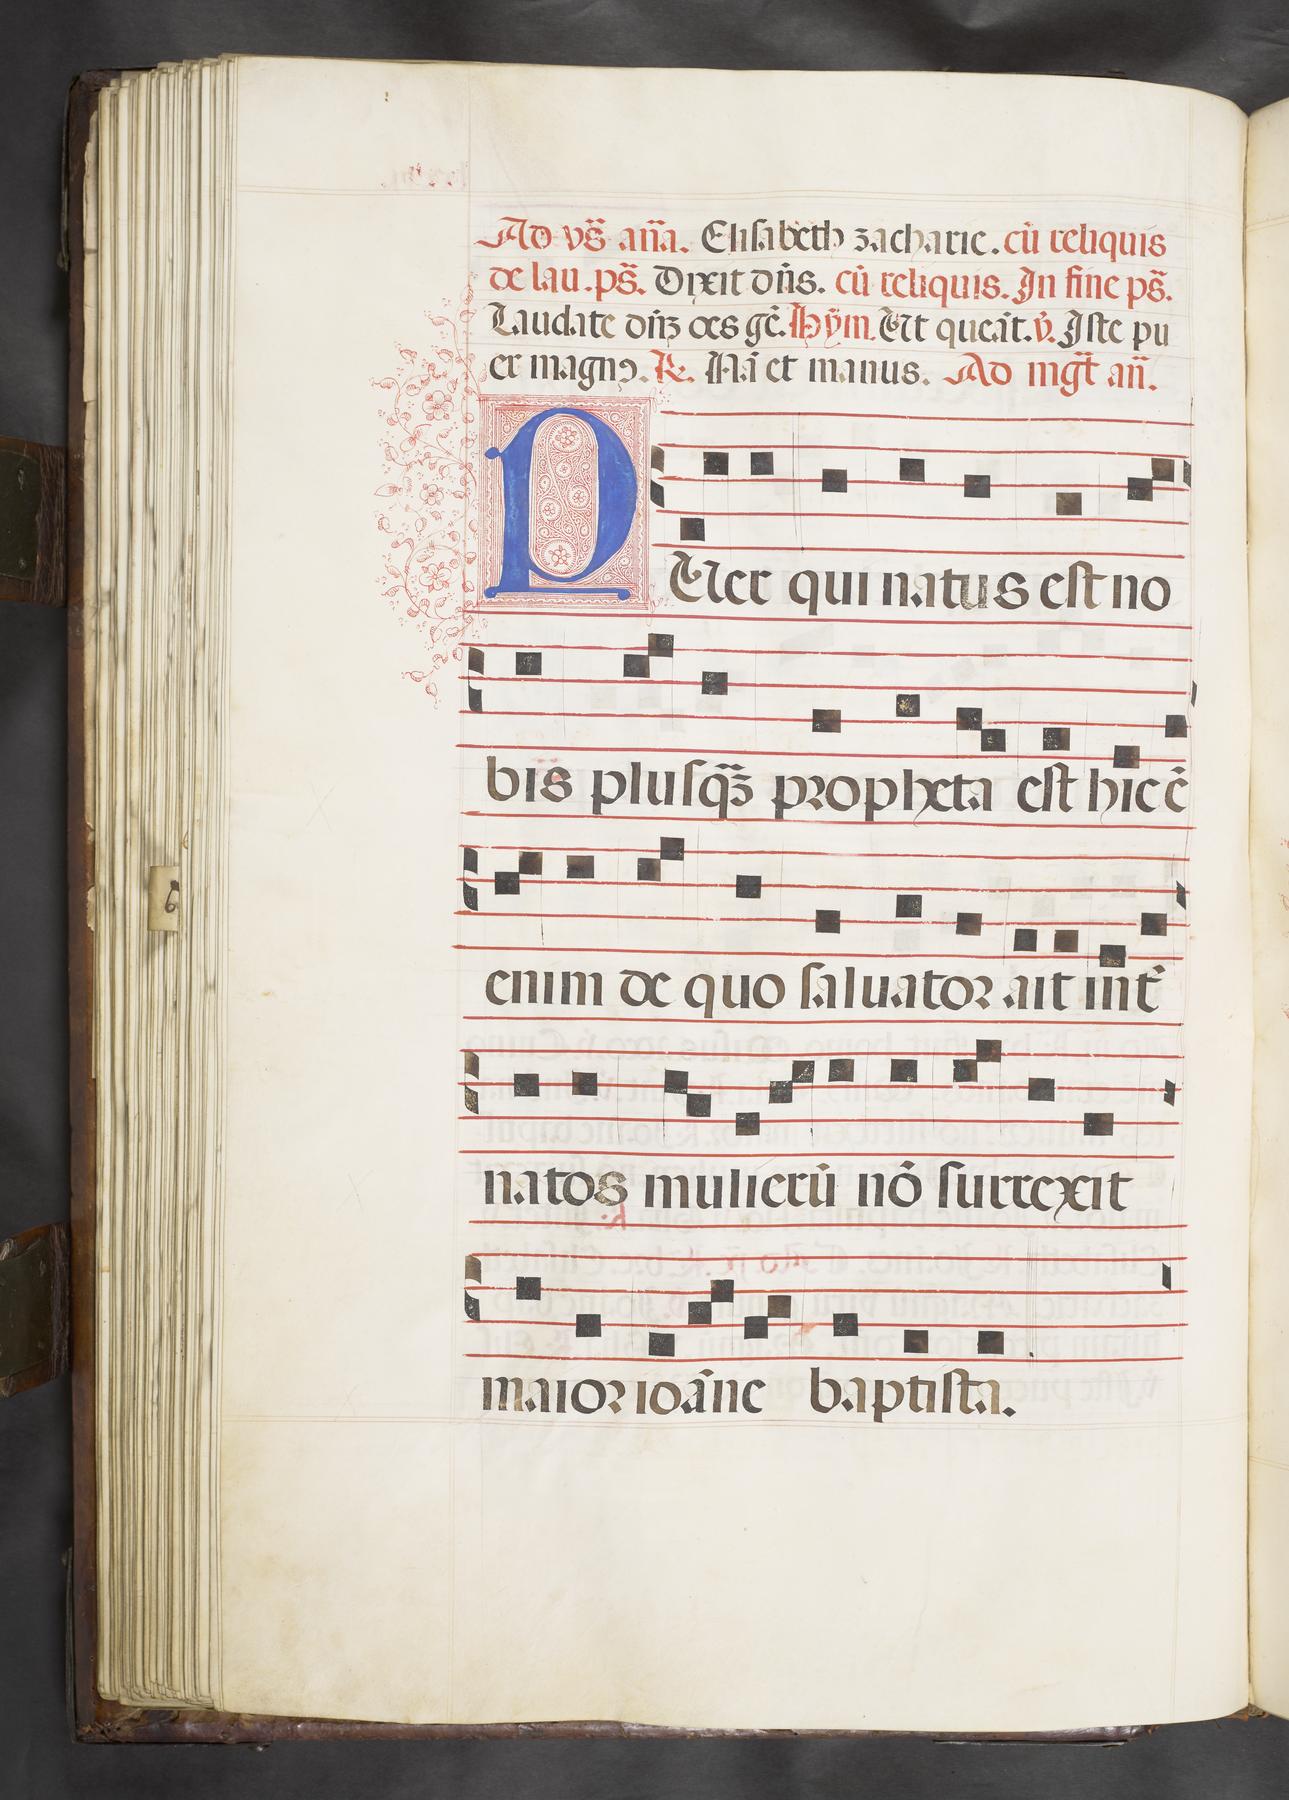 Ad vs̄ an̄a. Elisabeth zacharie. cū reliquis
de lau. ps̄. Dixit dn̄s. cū reliquis. In fine ps̄.
Laudate dn̄ꝫ oēs gē. Hym̄. Ut queāt. v̄. Iste pu
er magnꝰ. R. Nā et manus. Ad mḡt an̄.
PUer qui natus est no
bis plusqꝫ̄ propheta est hic ē
enim de quo saluator ait int̄
natos mulierū nō surrexit
maior ioāne baptista.